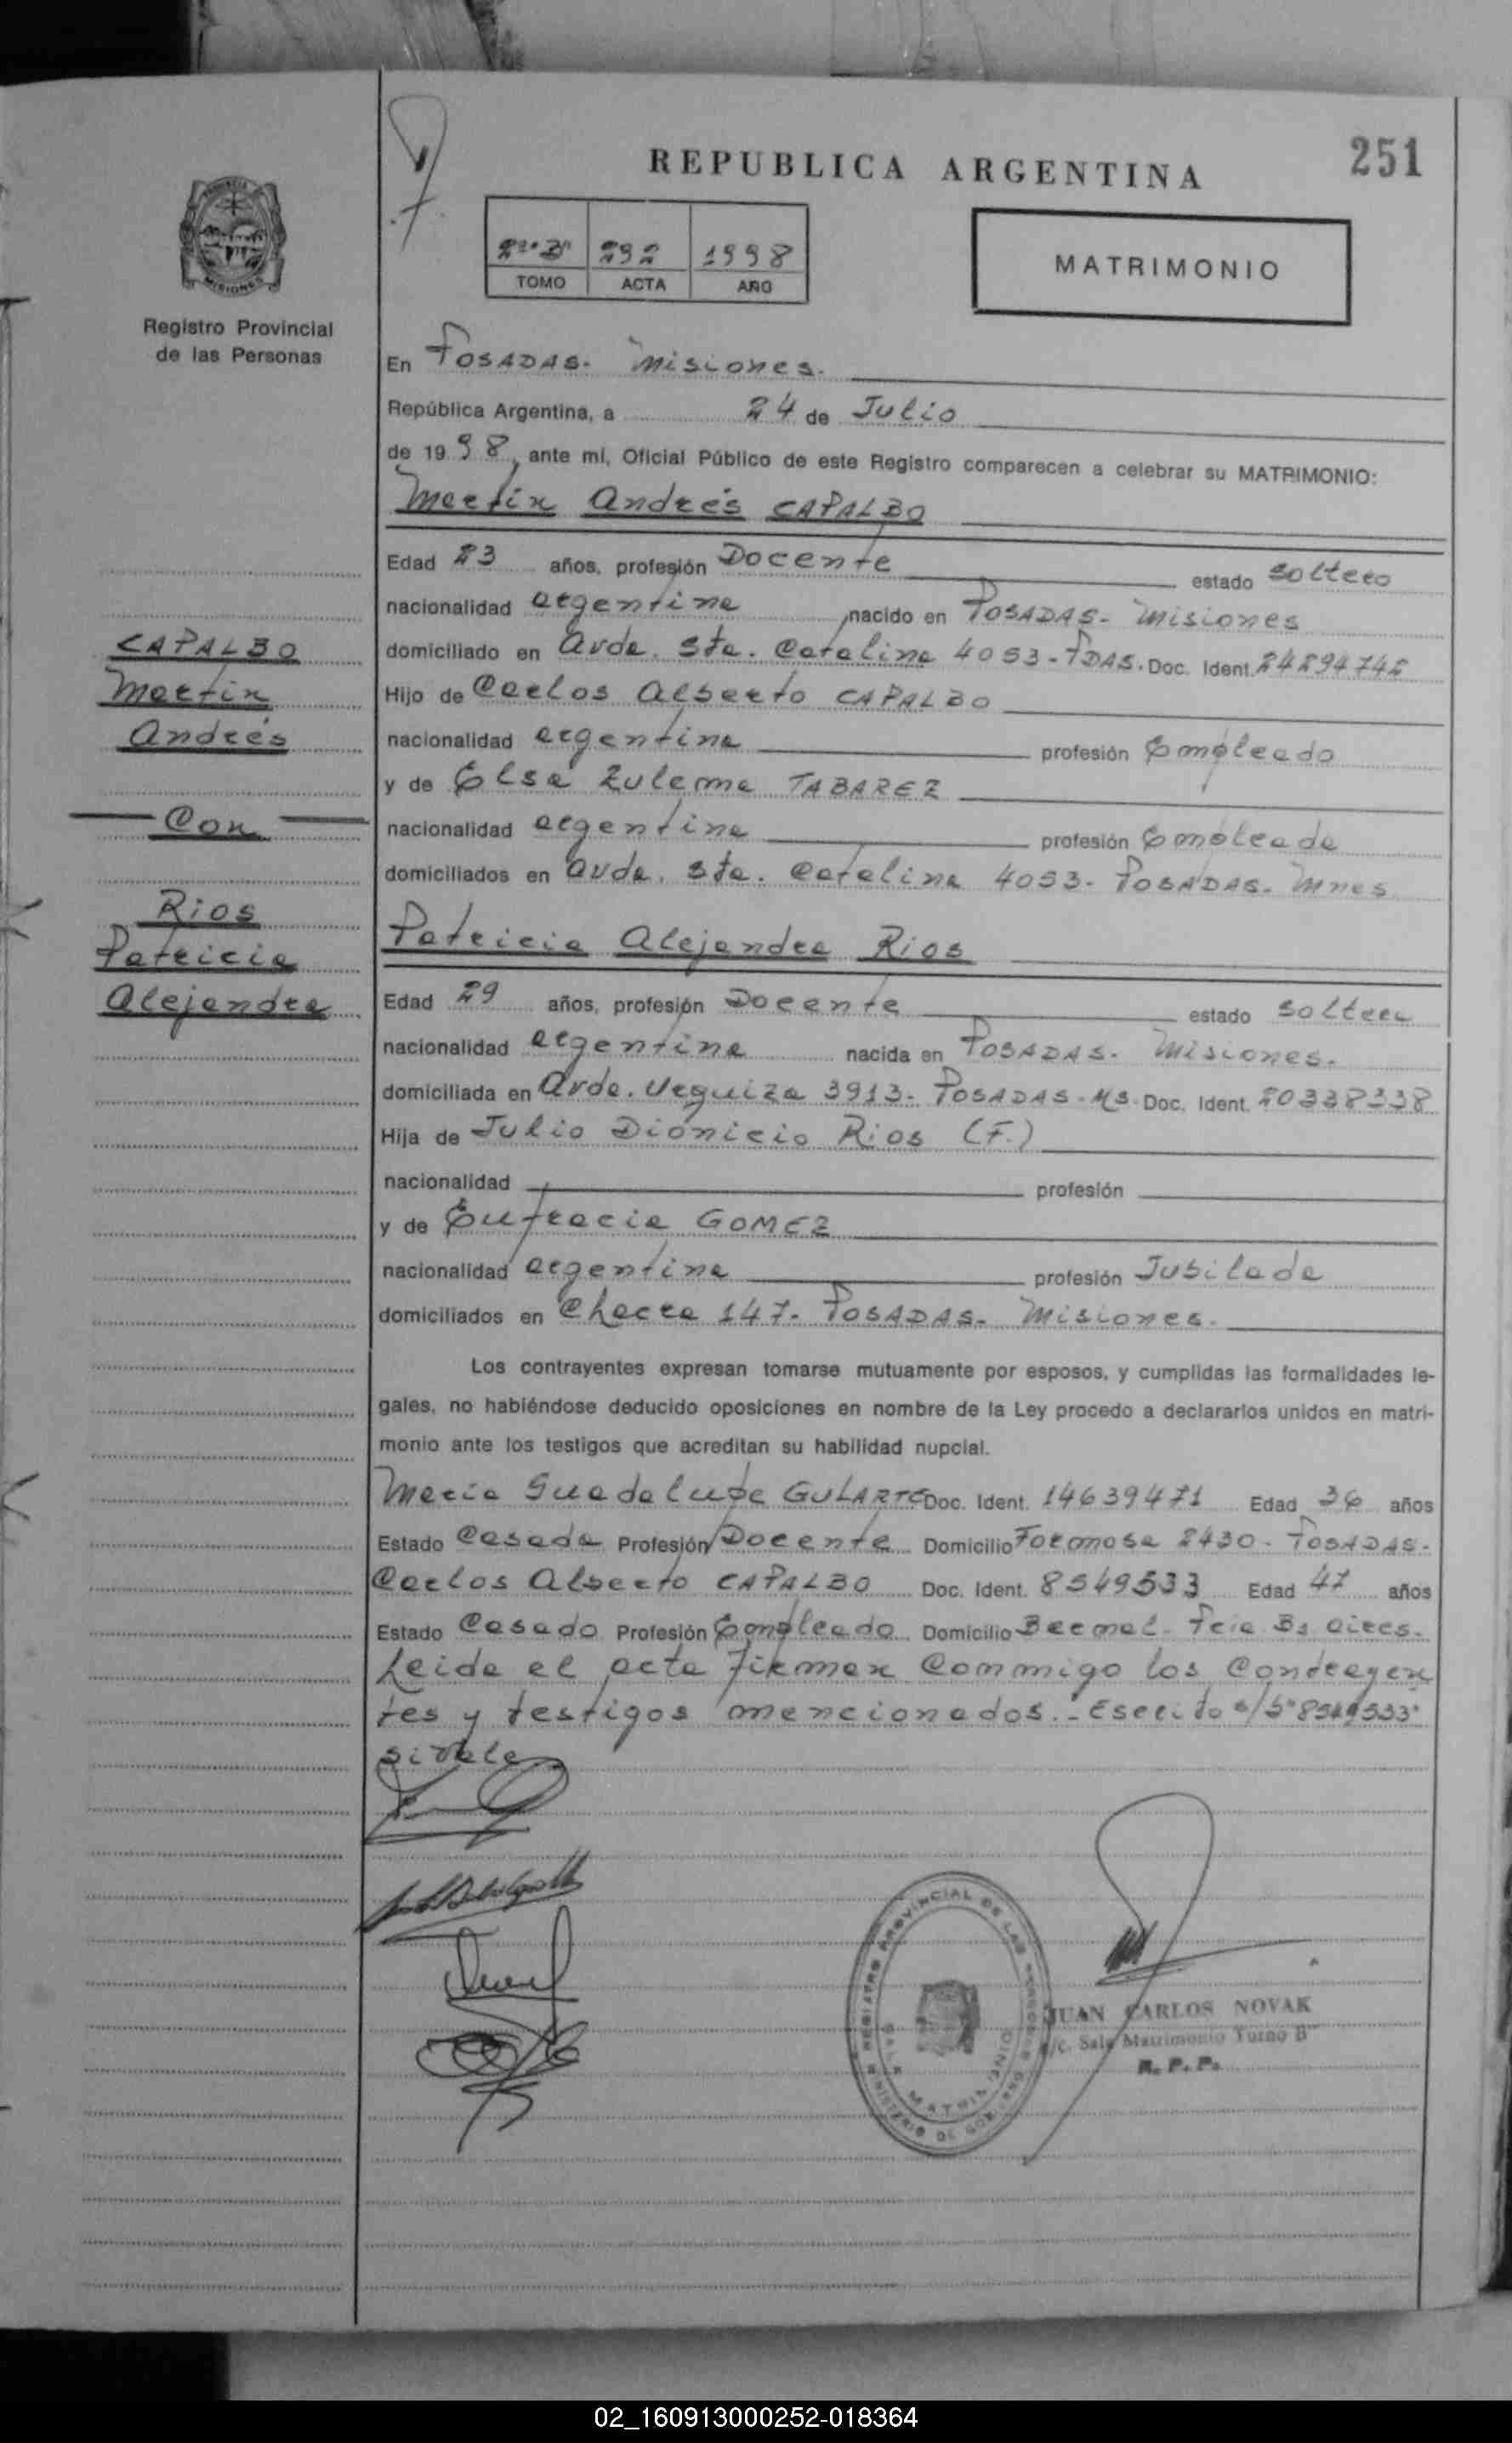 251
REPUBLICA ARGENTINA
2º"B" 292 1998
TOMO ACTA AÑO
MATRIMONIO
MISIONES
Registro Provincial
de las Personas
CAPALBO
Martin
Andrés
Con
Rios
Patricia
Alejandra
En POSADAS. Misiones.
República Argentina, a 24 de Julio
de 1998, ante mí, Oficial Público de este Registro comparecen a celebrar su MATRIMONIO:
Martin Andrés CAPALBO
Edad 23 años, profesión Docente estado soltero
nacionalidad argentina nacido en POSADAS- Misiones
domiciliado en Avda. Sta. Catalina 4053-PDAS. Doc. Ident. 24294742
Hijo de Carlos Alberto CAPALBO
nacionalidad argentina profesión Empleado
y de Elsa Zulema TABAREZ
nacionalidad argentina profesión Empleada
domiciliados en Avda. Sta. Catalina 4053- POSADAS- Mnes
Patricia Alejandra Rios
Edad 29 años, profesión Docente estado soltera
nacionalidad argentina nacida en POSADAS. Misiones.
domiciliada en Avda. Urquiza 3913- POSADAS-MS. Doc. Ident. 20338338
Hija de Julio Dionicio Rios (F.)
nacionalidad profesión
y de Eufracia GOMEZ
nacionalidad argentina profesión Jubilada
domiciliados en Chacra 147- POSADAS- Misiones.
Los contrayentes expresan tomarse mutuamente por esposos, y cumplidas las formalidades le-
gales, no habiéndose deducido oposiciones en nombre de la Ley procedo a declararlos unidos en matri-
monio ante los testigos que acreditan su habilidad nupcial.
Maria Guadalupe GULARTE Doc. Ident. 14639471 Edad 36 años
Estado Casada Profesión Docente Domicilio Formosa 2430- POSADAS-
Carlos Alberto CAPALBO Doc. Ident. 8549533 Edad 47 años
Estado Casado Profesión Empleado Domicilio Bermal- Pcia Bs Aires.
Leida el acta firman Commigo los Contrayen
tes y testigos mencionados.- Escrito s/b "8549533"
si vale
REGISTRO PROVINCIAL DE LAS PERSONAS
SALA MATRIMONIO
MINISTERIO DE GOBIERNO
JUAN CARLOS NOVAK
/c. Sala Matrimonio Turno B"
R. P. P.
02_160913000252-018364